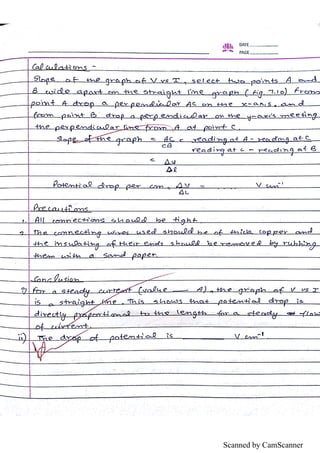 DATE
PAGE
Calculations -
Slope of the graph of V vs I, select two points A and
B wide apart on the straight line graph (fig 7.10) from
point A drop a perpendicular AC on the x-axis. and
from point B drop a perpendicular on the y-axis meeting
the perpendicular line from A at point C.
Slope of the graph = AC = reading at A - reading at C
CB reading at C - reading at B
= ΔV
Δl
Potential drop per cm, ΔV = ........ V cm⁻¹
ΔL
Precautions
1. All connections should be tight.
2. The connecting wires used should be of thick copper and
the insulating of their ends should be removed by rubbing
them with a sand paper.
Conclusion
i) for a steady current (value ___ A), the graph of V vs I
is a straight line. This shows that potential drop is
directly proportional to the length for a steady flow
of current.
ii) The drop of potential is ________ V cm⁻¹
Scanned by CamScanner